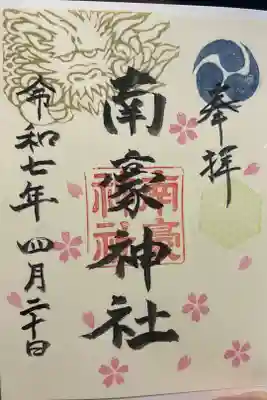 奉拝
南濠神社
南豪神社
令和七年 四月二十日